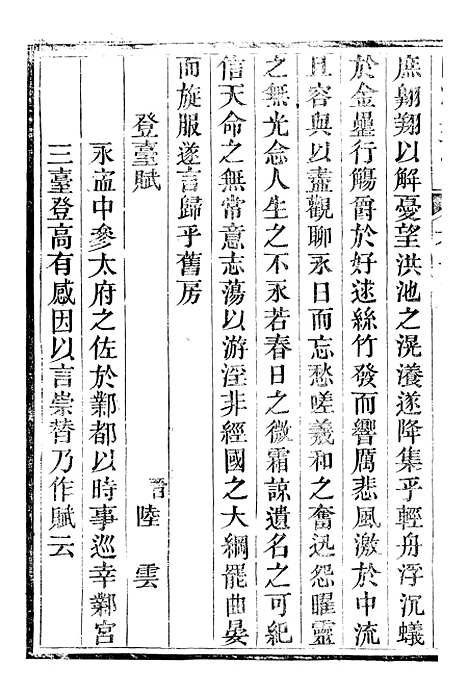 庶翱翔以解憂望洪池之滉瀁遂降集乎輕舟浮沉蟻
於金罍行觴爵於好逑絲竹發而響厲悲風激於中流
且容與以盡觀聊永日而忘愁嗟羲和之奮迅怨曜靈
之無光念人生之不永若春日之微霜諒遺名之可紀
信天命之無常意志蕩以游淫非經國之大綱罷曲晏
而旋服遂言歸乎舊房
登臺賦
晉陸雲
永盂中參太府之佐於鄴都以時事巡幸鄴宮
三臺登高有感因以言崇替乃作賦云